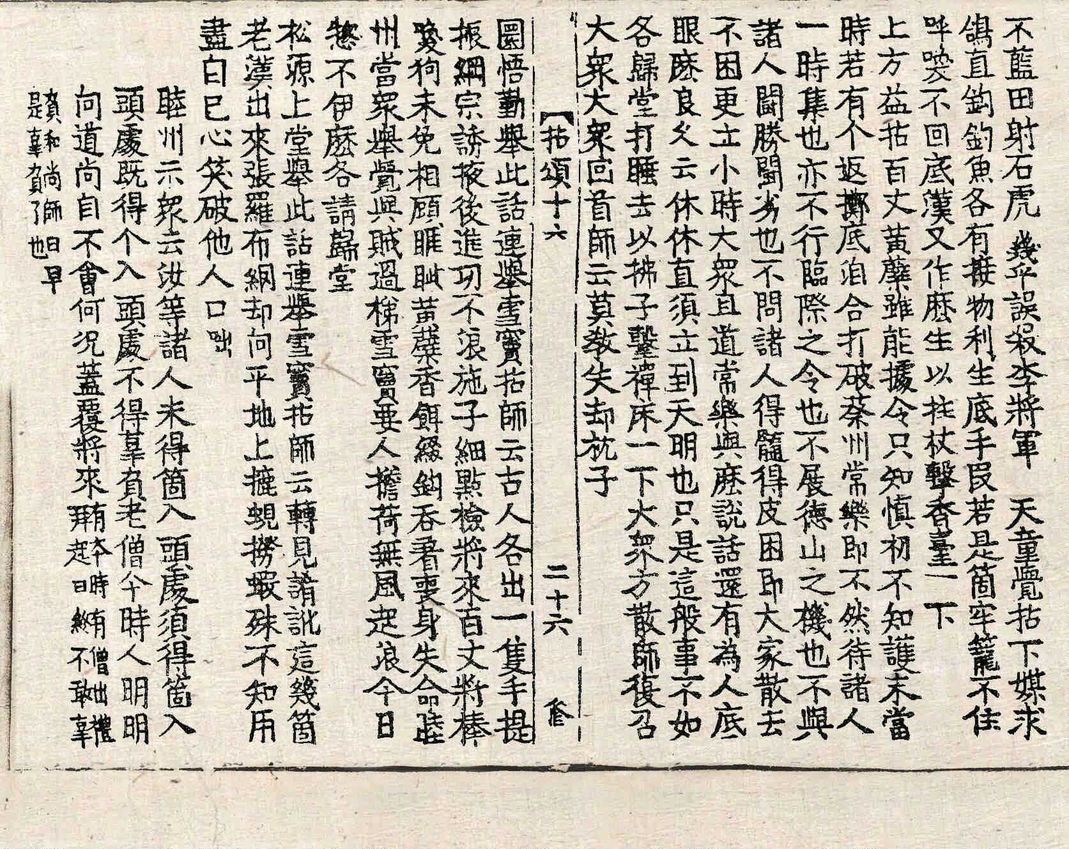 不藍田射石虎 幾乎誤殺李將軍 天童覺拈下媒求
鴿直鈎釣魚各有接物利生底手段若是箇牢籠不住
呼喚不回底漢又作麽生以拄杖擊香臺一下
上方益拈百丈黃蘗雖能據令只知慎初不知護末當
時若有个返擲底洎合打破蔡州常樂即不然待諸人
一時集也亦不行臨際之令也不展德山之機也不與
諸人鬪勝鬪劣也不問諸人得髓得皮困即大家散去
不困更立小時大衆且道常樂與麽說話還有為人底
眼麽良久云休休直須立到天明也只是這般事不如
各歸堂打睡去以拂子擊禪床一下大衆方散師復召
大衆大衆回首師云莫教失却枕子
【拈頌十六 二十六
圜悟勤舉此話連舉雪竇拈師云古人各出一隻手提
振綱宗誘掖後進功不浪施子細點檢將來百丈將棒
喚狗未免相顧睚眦黃蘗香餌綴鈎吞著喪身失命睦
州當衆舉覺與賊過梯雪竇要人擔荷無風起浪今日
惣不伊麽各請歸堂
松源上堂舉此話連舉雪竇拈師云轉見誵訛這幾箇
老漢出來張羅布網却向平地上摝蜆撈蝦殊不知用
盡自己心笑破他人口咄
睦州示衆云汝等諸人未得箇入頭處須得箇入
頭處既得个入頭處不得辜負老僧今時人明明
向道尚自不會何況蓋覆將來有本時有僧出禮拜起曰終不敢辜
負和尚師曰早是辜負了也